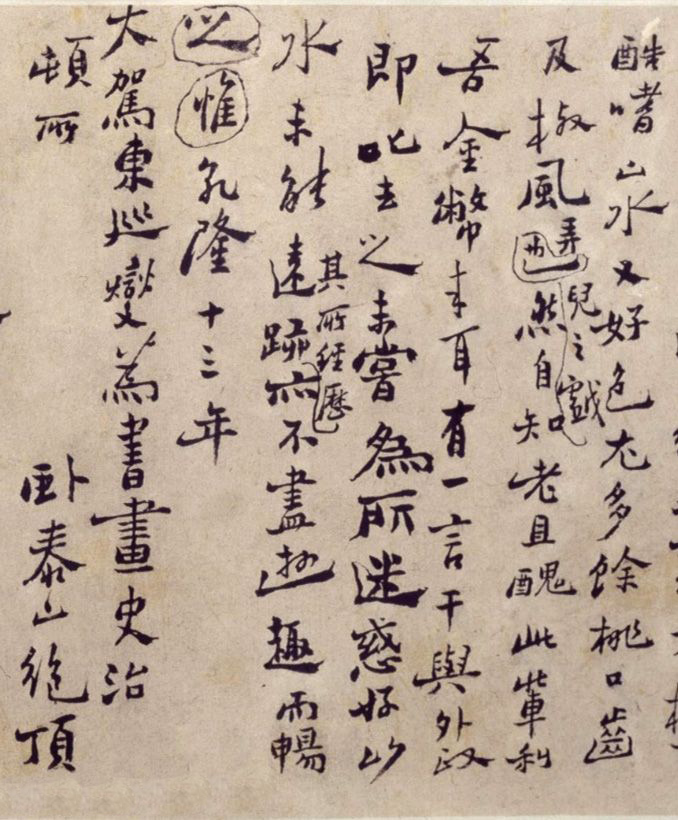 酷嗜山水又好色尤多餘桃口齒
及椒風弄兒之戲然自知老且醜此輩利
吾金幣来耳有一言干與外政
即叱去之未嘗為所迷惑好山
水未能遠跡其所經歷亦不盡遊趣而暢
之惟乾隆十三年
大駕東巡燮為書畫史治
頓所 卧泰山絶頂